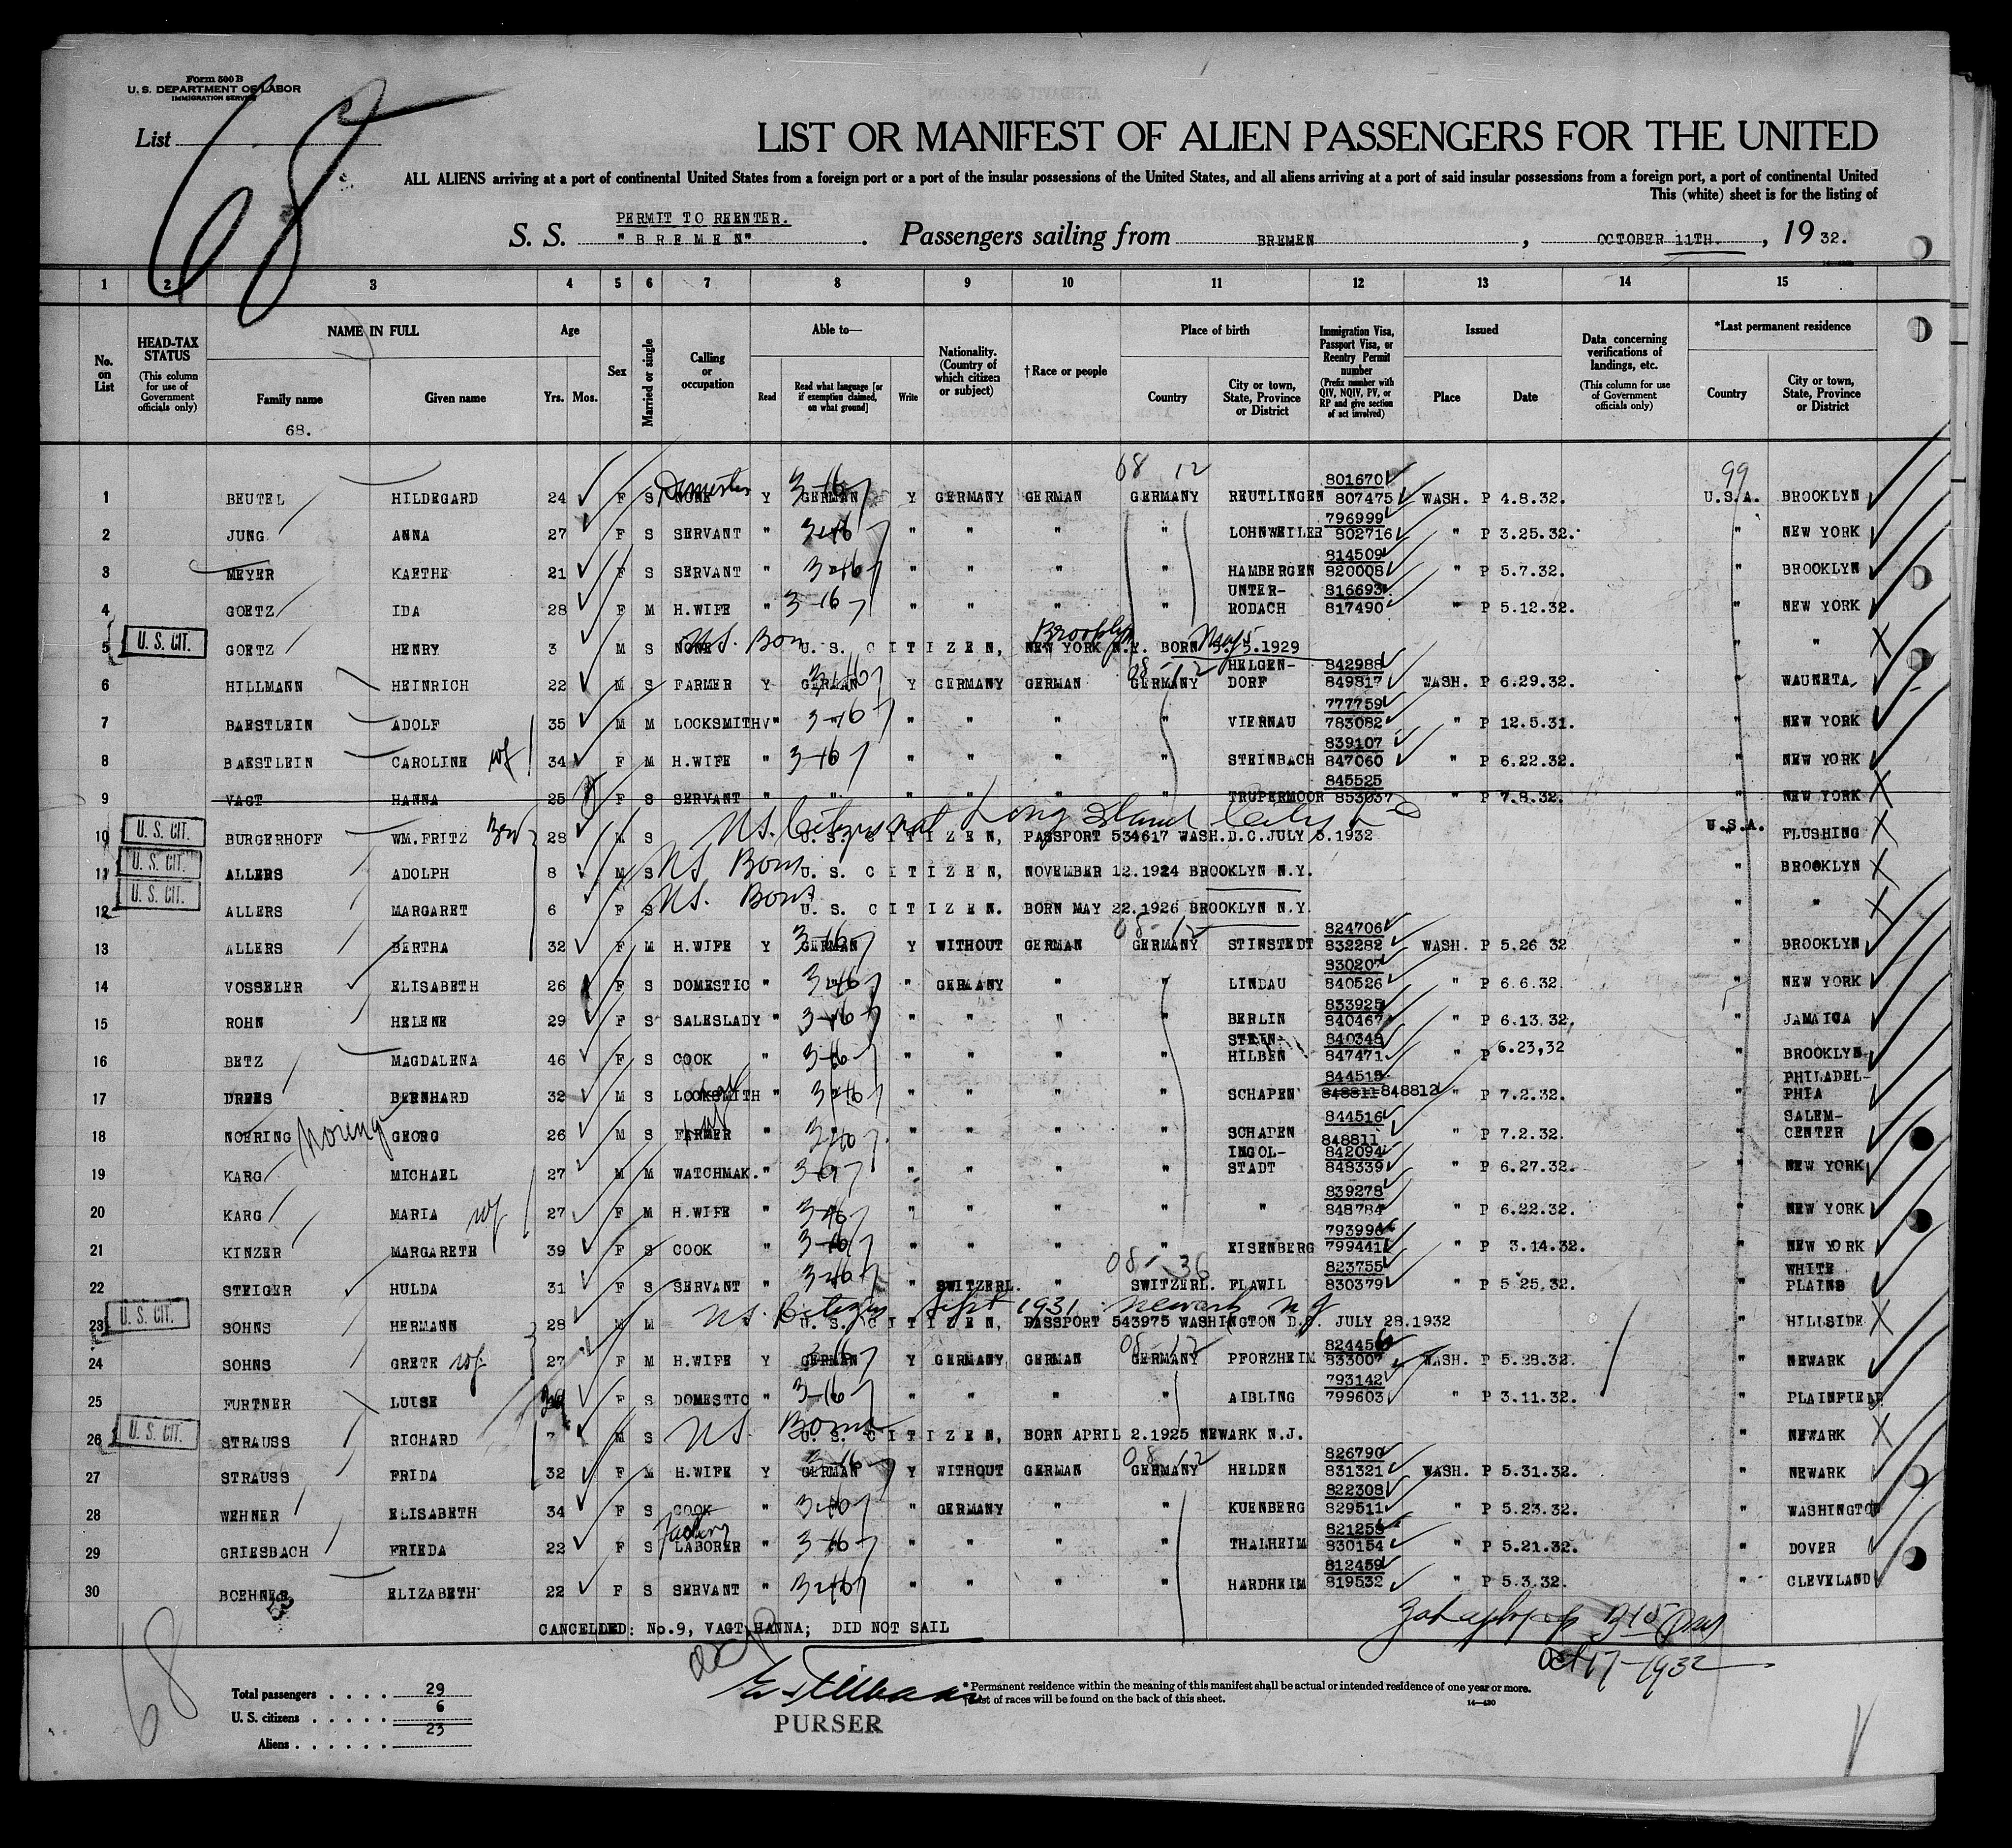 Form 500 B
U. S. DEPARTMENT OF LABOR
IMMIGRATION SERVICE
List 68
LIST OR MANIFEST OF ALIEN PASSENGERS FOR THE UNITED
ALL ALIENS arriving at a port of continental United States from a foreign port or a port of the insular possessions of the United States, and all aliens arriving at a port of said insular possessions from a foreign port, a port of continental United
This (white) sheet is for the listing of
PERMIT TO REENTER.
S. S. "BREMEN". Passengers sailing from BREMEN, OCTOBER 11TH., 19 32.
1 2 3 4 5 6 7 8 9 10 11 12 13 14 15
No. on List
HEAD-TAX STATUS (This column for use of Government officials only)
NAME IN FULL Family name Given name
68.
Age Yrs. Mos.
Sex
Married or single
Calling or occupation
Able to— Read Read what language [or if exemption claimed, on what ground] Write
Nationality. (Country of which citizen or subject)
†Race or people
Place of birth Country City or town, State, Province or District
Immigration Visa, Passport Visa, or Reentry Permit number (Prefix number with QIV, NQIV, PV, or RP and give section of act involved)
Issued Place Date
Data concerning verifications of landings, etc. (This column for use of Government officials only)
*Last permanent residence Country City or town, State, Province or District
68 12 99
1 BEUTEL HILDEGARD 24 F S NONE Domestic Y GERMAN 3-16 Y GERMANY GERMAN GERMANY REUTLINGEN 801670 807475 WASH. P 4.8.32. U.S.A. BROOKLYN
2 JUNG ANNA 27 F S SERVANT " 3-16 " " " " LOHNWEILER 796999 802716 " P 3.25.32. " NEW YORK
3 MEYER KAETHE 21 F S SERVANT " 3-16 " " " " HAMBERGEN 814509 820008 " P 5.7.32. " BROOKLYN
4 GOETZ IDA 28 F M H.WIFE " 3-16 " " " " UNTER-RODACH 816693 817490 " P 5.12.32. " NEW YORK
U. S. CIT. 5 GOETZ HENRY 3 M S NONE US. Born U. S. CITIZEN, NEW YORK N.Y. Brooklyn BORN 5.5.1929 May 5 " "
6 HILLMANN HEINRICH 22 M S FARMER Y GERMAN 3-16 Y GERMANY GERMAN GERMANY 08-12 HELGEN-DORF 842988 849817 WASH. P 6.29.32. " WAUNETA
7 BAESTLEIN ADOLF 35 M M LOCKSMITH " 3-16 " " " " VIERNAU 777759 783082 " P 12.5.31. " NEW YORK
8 BAESTLEIN CAROLINE wf 34 F M H.WIFE " 3-16 " " " " STEINBACH 839107 847060 " P 6.22.32. " NEW YORK
9 VAGT HANNA 25 F S SERVANT " " " " " " TRUPERMOOR 845525 853037 " P 7.8.32. " NEW YORK
U. S. CIT. 10 BURGERHOFF WM.FRITZ 28 M S U. S. CITIZEN, PASSPORT 534617 WASH.D.C.JULY 5.1932 U.S.A. FLUSHING
US. Citizen at Long Island City
U. S. CIT. 11 ALLERS ADOLPH 8 M S US Born U. S. CITIZEN, NOVEMBER 12.1924 BROOKLYN N.Y. " BROOKLYN
U. S. CIT. 12 ALLERS MARGARET 6 F S US. Born U. S. CITIZEN. BORN MAY 22.1926 BROOKLYN N.Y. " "
13 ALLERS BERTHA 32 F M H.WIFE Y GERMAN 3-16 Y WITHOUT GERMAN GERMANY 08-12 STINSTEDT 824706 832282 WASH. P 5.26 32 " BROOKLYN
14 VOSSELER ELISABETH 26 F S DOMESTIC " 3-16 " GERMANY " " LINDAU 830207 840526 " P 6.6.32 " NEW YORK
15 ROHN HELENE 29 F S SALESLADY " 3-16 " " " " BERLIN 833925 840467 " P 6.13.32, " JAMAICA
16 BETZ MAGDALENA 46 F S COOK " 3-16 " " " " STEIN-HILBEN 840348 847471 " P 6.23,32 " BROOKLYN
17 DREES BERNHARD 32 M S LOCKSMITH " 3-16 " " " " SCHAPEN 844515 848811 848812 " P 7.2.32. " PHILADEL-PHIA
18 NOERING Noring GEORG 26 M S FARMER " " " " " " SCHAPEN 844516 848811 " P 7.2.32. " SALEM-CENTER
19 KARG MICHAEL 27 M M WATCHMAK. " " " " " INGOL-STADT 842094 848339 " P 6.27.32. " NEW YORK
20 KARG MARIA wf 27 F M H.WIFE " 3-16 " " " " " 839278 848784 " P 6.22.32. " NEW YORK
21 KINZER MARGARETE 39 F S COOK " 3-16 " " " " EISENBERG 793996 799441 " P 3.14.32. " NEW YORK
22 STEIGER HULDA 31 F S SERVANT " 3-16 " SWITZERL. " SWITZERL. 08-36 FLAWIL 823755 830379 " P 5 25.32. " WHITE PLAINS
U. S. CIT. 23 SOHNS HERMANN 28 M M U. S. CITIZEN, PASSPORT 543975 WASHINGTON D.C. JULY 28.1932 " HILLSIDE
US. Citizen Sept 1931 Newark NJ
24 SOHNS GRETE wf. 27 F M H.WIFE Y GERMAN 3-16 Y GERMANY GERMAN GERMANY 08-12 PFORZHEIM 824456 833007 WASH. P 5.28.32. " NEWARK
25 FURTNER LUISE F S DOMESTIC " 3-16 " " " " AIBLING 793142 799603 " P 3.11.32. " PLAINFIELD
U. S. CIT. 26 STRAUSS RICHARD 7 M S US. Born U. S. CITIZEN, BORN APRIL 2.1925 NEWARK N.J. " NEWARK
27 STRAUSS FRIDA 32 F M H.WIFE Y GERMAN 3-16 Y WITHOUT GERMAN GERMANY 08 12 HELDEN 826790 831321 WASH. P 5.31.32. " NEWARK
28 WEHNER ELISABETH 34 F S COOK " 3-16 " GERMANY " " KUENBERG 822308 829511 " P 5.23.32. " WASHINGTON
29 GRIESBACH FRIEDA 22 F S Factory LABORER " 3-16 " " " " THALHEIM 821258 830154 " P 5.21.32. " DOVER
30 BOEHNER ELIZABETH 22 F S SERVANT " 3-16 " " " " HARDHEIM 812459 819532 " P 5.3.32. " CLEVELAND
CANCELLED: No.9, VAGT HANNA; DID NOT SAIL
Oct 17-1932
68
PURSER
Total passengers . . . . 29
U. S. citizens . . . . . 6
Aliens . . . . . . 23
* Permanent residence within the meaning of this manifest shall be actual or intended residence of one year or more.
† List of races will be found on the back of this sheet.
14—430